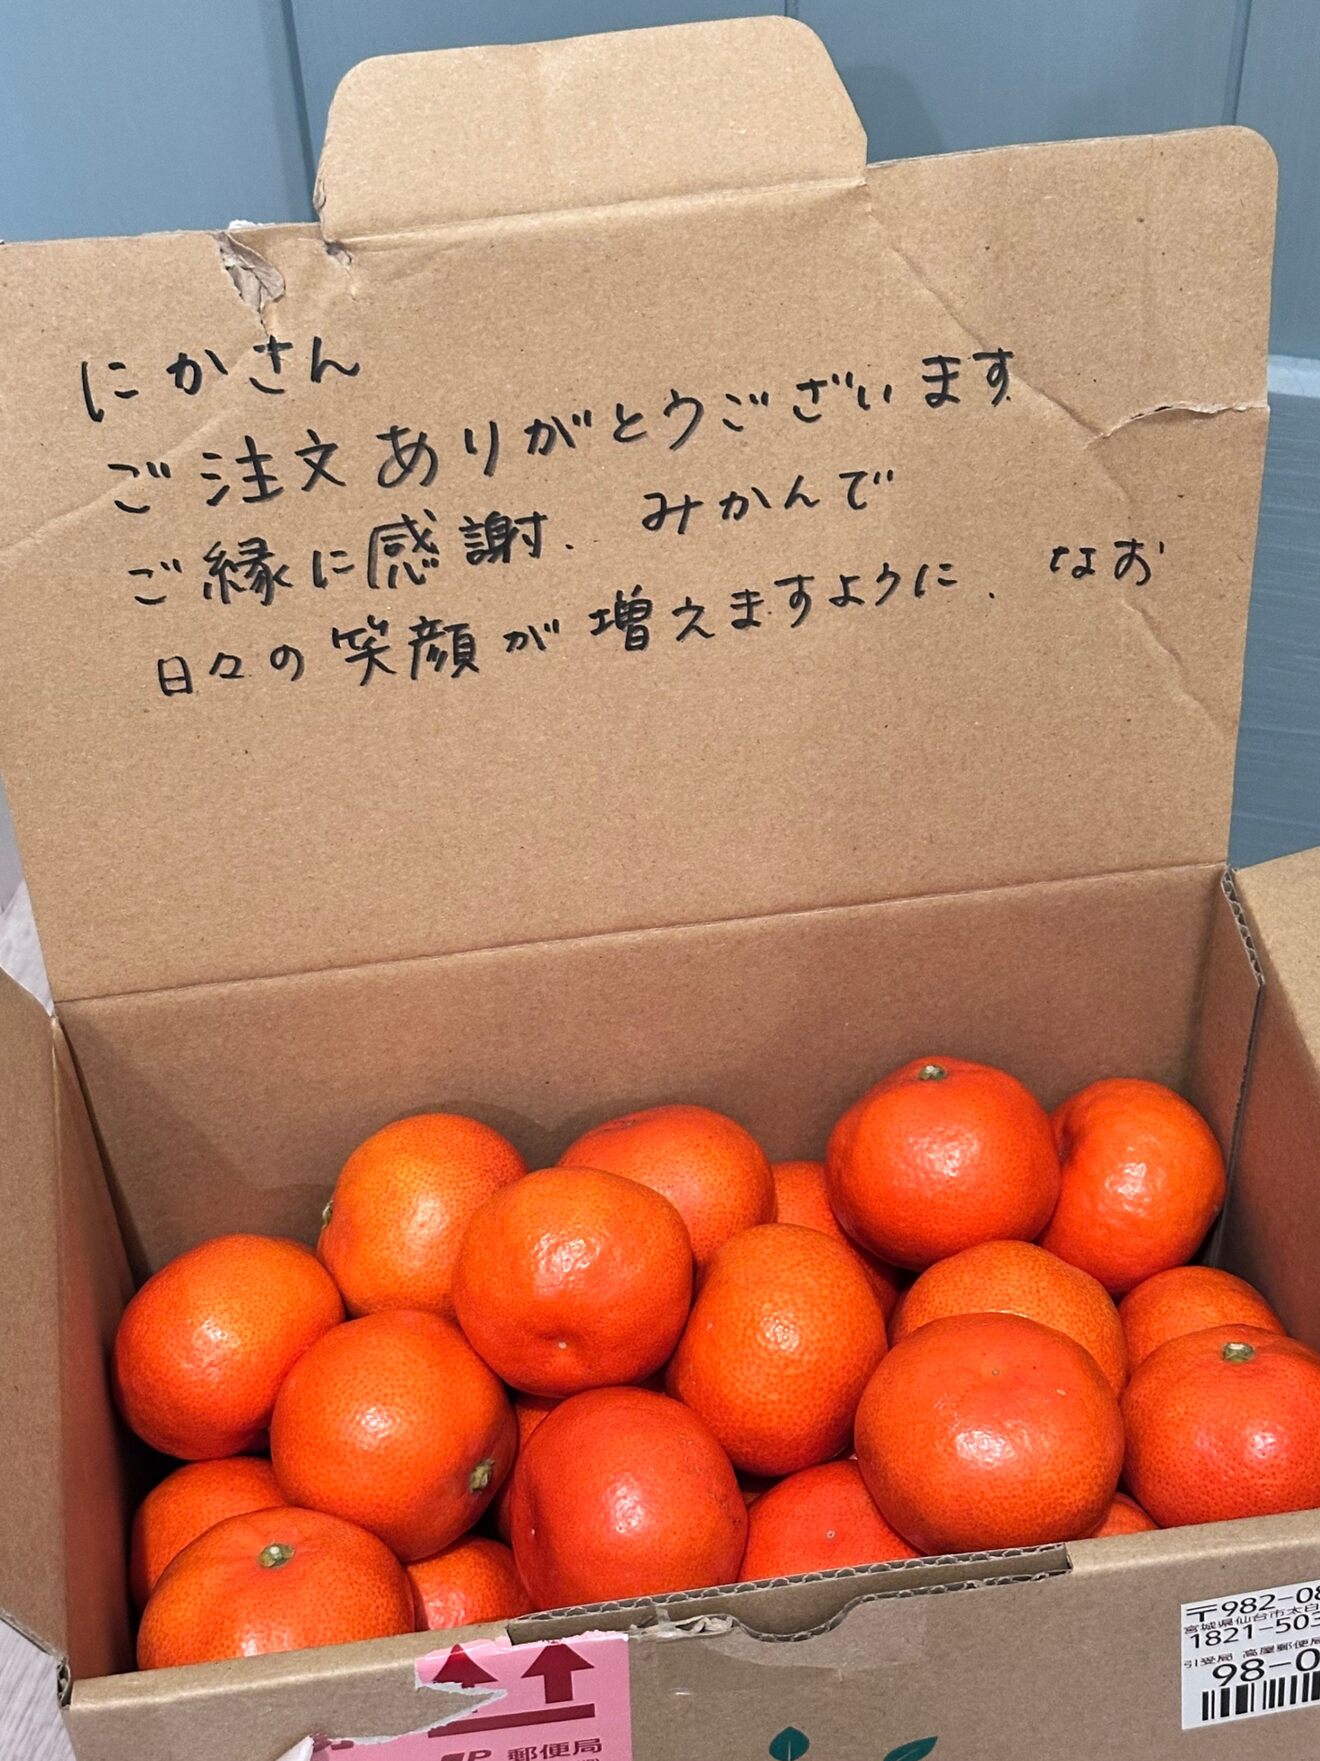 にかさん
ご注文ありがとうございます
ご縁に感謝. みかんで
日々の笑顔が増えますように. なお
〒982-08
宮城県仙台市太白
1821-503
引受局 高屋郵便局
98-0
郵便局